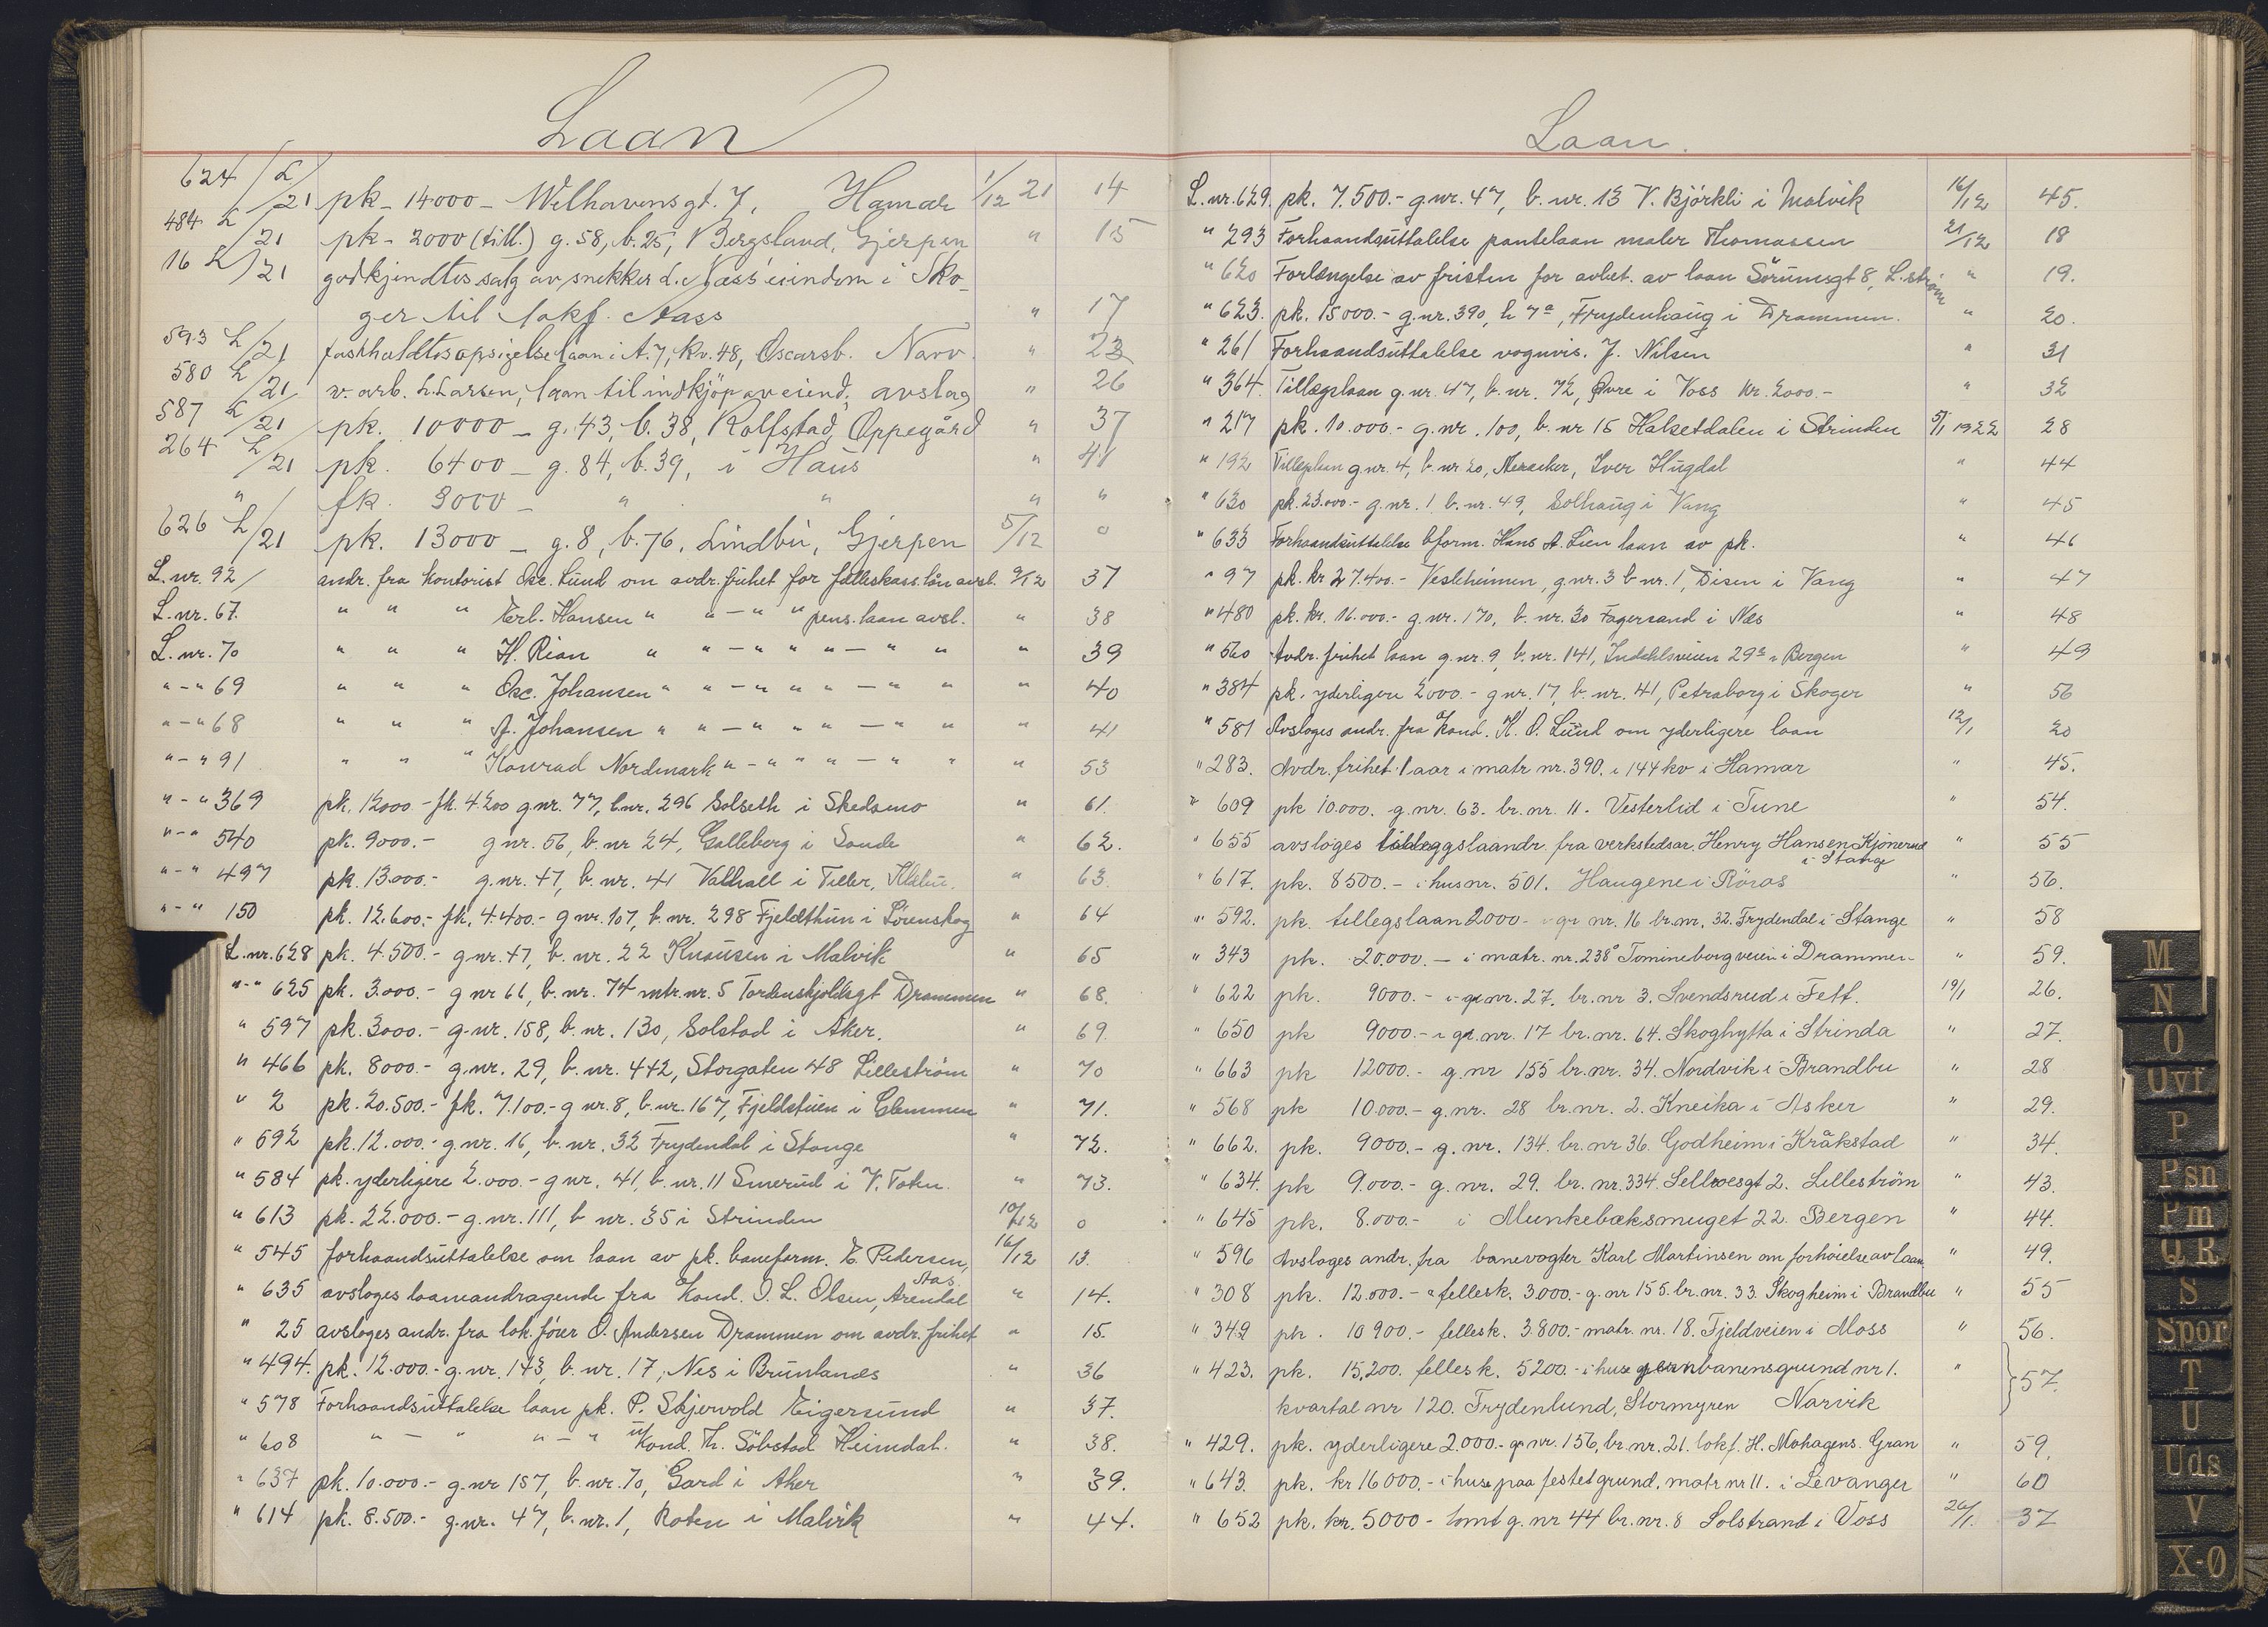 Laan
624 L/21 pk - 14000 - Welhavensgt. 7, Hamar 1/12 21 14
484 L/21 pk - 2000 (till.) g. 58, b. 25, Bergsland, Gjerpen " 15
16 L/21 godkjendtes salg av snekker L. Næss' eiendom i Sko-
ger til lokf. Aass " 17
593 L/21 fastholdtes opsigelse laan i A. 7, kv. 48, Oscarsb. Narv. " 23
580 L/21 v. arb. L. Larsen, laan til indkjöp av eiend., avslag " 26
587 L/21 pk. 10000 - g. 43, b. 38, Rolfstad, Oppegård " 37
264 L/21 pk. 6400 - g. 84, b. 39, i Haus " 41
" fk. 3000 - " " " "
626 L/21 pk. 13000 - g. 8, b. 76, Lindbu, Gjerpen 5/12 0
L. nr. 92/ andr. fra kontorist Osc. Lund om avdr. frihet for felleskass. lån avsl. 9/12 37
L. nr. 67. " " " Erl. Hansen " " - " " pens. laan avsl. " 38
L. nr. 70 " " " H. Rian " " - " " " - " " " 39
" - " 69 " " " Osc. Johansen " " - " " " - " " " 40
" - " 68 " " " A. Johansen " " - " " " - " " " 41
" - " 91 " " " Konrad Nordmark " - " " " - " " " 53
" - " 369 pk. 12000 - fk. 4.200 g nr. 77, b. nr. 296 Solseth i Skedsmo " 61.
" - " 540 pk. 9000.- g nr. 56, b. nr 24, Galleberg i Sande " 62.
" - " 497 pk. 13.000.- g. nr. 47, b. nr. 41 Valhall i Tiller, Klæbu. " 63.
" - " 150 pk. 12.600.- fk. 4.400.- g nr. 107, b. nr. 298 Fjeldthun i Lörenskog " 64
L. nr. 628 pk. 4.500.- g nr. 47, b. nr. 22 Knausen i Malvik " 65
" - " 625 pk. 3.000.- g nr 66, b. nr. 74 mtr. nr. 5 Tordenskjoldsgt Drammen " 68.
" 597 pk. 3000.- g. nr. 158, b. nr. 130, Solstad i Aker. " 69.
" 466 pk. 8000.- g. nr. 29, b. nr. 442, Storgaten 48 Lilleström " 70
" 2 pk. 20.500.- fk. 7.100.- g nr. 8, b. nr. 167, Fjeldstuen i Glemmen " 71.
" 592 pk. 12.000.- g nr. 16, b. nr. 32 Frydendal i Stange " 72.
" 584 pk. yderligere 2.000.- g nr. 41, b. nr. 11 Smerud i V. Toten. " 73.
" 613 pk. 22.000.- g. nr. 111, b nr. 35 i Strinden 10/12 0
" 545 forhaandsuttalelse om laan av pk. baneform. E. Pedersen, Aas. 16/12 13.
" 635 avsloges laaneandragende fra Kond. O. L. Olsen, Arendal " 14.
" 25 avsloges andr. fra lok. förer O. Andersen Drammen om avdr. frihet " 15.
" 494. pk. 12.000.- g. nr. 143, b. nr. 17, Nes i Brunlanes " 36
" 578 Forhaandsuttalelse laan pk. P. Skjervold Eigersund " 37.
" 608 " - " " - " ukond. Th. Söbstad Heimdal. " 38.
" 637 pk. 10.000.- g. nr 157, b. nr. 70, Gard i Aker " 39.
" 614 pk. 8.500.- g. nr. 47, b. nr. 1, Roten i Malvik " 44.
Laan.
L. nr. 629. pk. 7.500.- g nr. 47, b. nr. 13 V. Björkli i Malvik 16/12 45.
" 293 Forhaandsuttalelse pantelaan maler Thomassen 21/12 18
" 620 Forlængelse av fristen for avbet. av laan Sörumsgt 8, L.ström " 19.
" 623. pk. 15000.- g. nr. 390, b 7a, Frydenhaug i Drammen. " 20.
" 261 Forhaandsuttalelse vognvis. J. Nilsen " 31
" 364. Tillægslaan g. nr. 47, b. nr. 72, Øvre i Voss kr. 2000.- " 32
" 217 pk. 10.000.- g. nr. 100, b. nr 15 Halsetdalen i Strinden 5/1 1922 28
" 192 Tillægslaan g nr. 4, b. nr 20, Meraker, Iver Hugdal " 44
" 630 pk. 23.000.- g nr. 1 b. nr. 49, Solhaug i Vang " 45
" 633 Forhaandsuttalelse bform. Hans A. Lien laan av pk. " 46
" 97 pk. kr 27.400.- Vesleheimen, g nr. 3 b nr. 1, Disen i Vang " 47
" 480 pk. kr. 16.000.- g. nr. 170, b. nr. 30 Fagersand i Nes " 48
" 560 Avdr. frihet laan g. nr. 9, b. nr. 141, Indahlsveien 29 i Bergen " 49
" 384 pk. yderligere 2000.- g nr. 17, b. nr. 41, Petraborg i Skoger " 56
" 581 Avsloges andr. fra kond. K. O. Lund om yderligere laan 12/1 20
" 283. Avdr. frihet 1 aar i matr nr. 390. i 144 kv i Hamar " 45.
" 609 pk 10.000. g. nr. 63. br. nr. 11. Vesterlid i Tune " 54.
" 655 avsloges tilleggslaandr. fra verkstedsar. Henry Hansen Kjönerud " 55
i Stange
" 617. pk. 8500.- i hus nr. 501. Haugene i Röros " 56.
" 592. pk. tillegslaan 2000.- i gr nr. 16 br. nr. 32. Frydendal i Stange " 58
" 343 pk. 20.000.- i matr. nr. 238 Tomineborgveien i Drammen " 59.
" 622 pk. 9000.- i gr. nr. 27. br. nr 3. Svendsrud i Fett. 19/1 26.
" 650 pk 9000.- i gr. nr. 17 br. nr. 64. Skoghytta i Strinda " 27.
" 663 pk 12000.- g. nr 155 br. nr. 34. Nordvik i Brandbu " 28
" 568 pk 10.000.- g. nr. 28 br. nr. 2. Kneika i Asker " 29.
" 662. pk. 9000.- g. nr. 134. br. nr 36. Godheim i Kråkstad " 34.
" 634. pk 9.000.- g. nr. 29. br. nr. 334. 2. Lilleström " 43.
" 645 pk. 8.000.- i Munkebæksmuget 22. Bergen " 44.
" 596 Avsloges andr. fra banevogter Karl Martinsen om forhöielse av laan " 49.
" 308 pk. 12.000.- a fellesk. 3000.- g. nr 155. br. nr. 33. Skogheim i Brandbu " 55
" 349 pk. 10 900.- fellesk. 3.800.- matr. nr. 18. Fjeldveien i Moss " 56.
" 423. pk. 15,200. fellesk. 5200.- i huse jernbanensgrund nr 1. " 57.
kvartal nr 120. Frydenlund, Stormyren Narvik
" 429. pk. yderligere 2.000.- gr nr. 156, br. nr. 21. lokf. H. Mohagens. Gran " 59.
" 643. pk. kr 16000.- i huse paa festet grund. matr nr 11. i Levanger " 60
" 652 pk. kr. 5000 - tomt g. nr 44 br. nr. 8 Solstrand i Voss 26/1. 37
M
N
O
Ovf
P
Psn
Pm
Q R
S
Spor
T
U
Uds
V
X-Ø